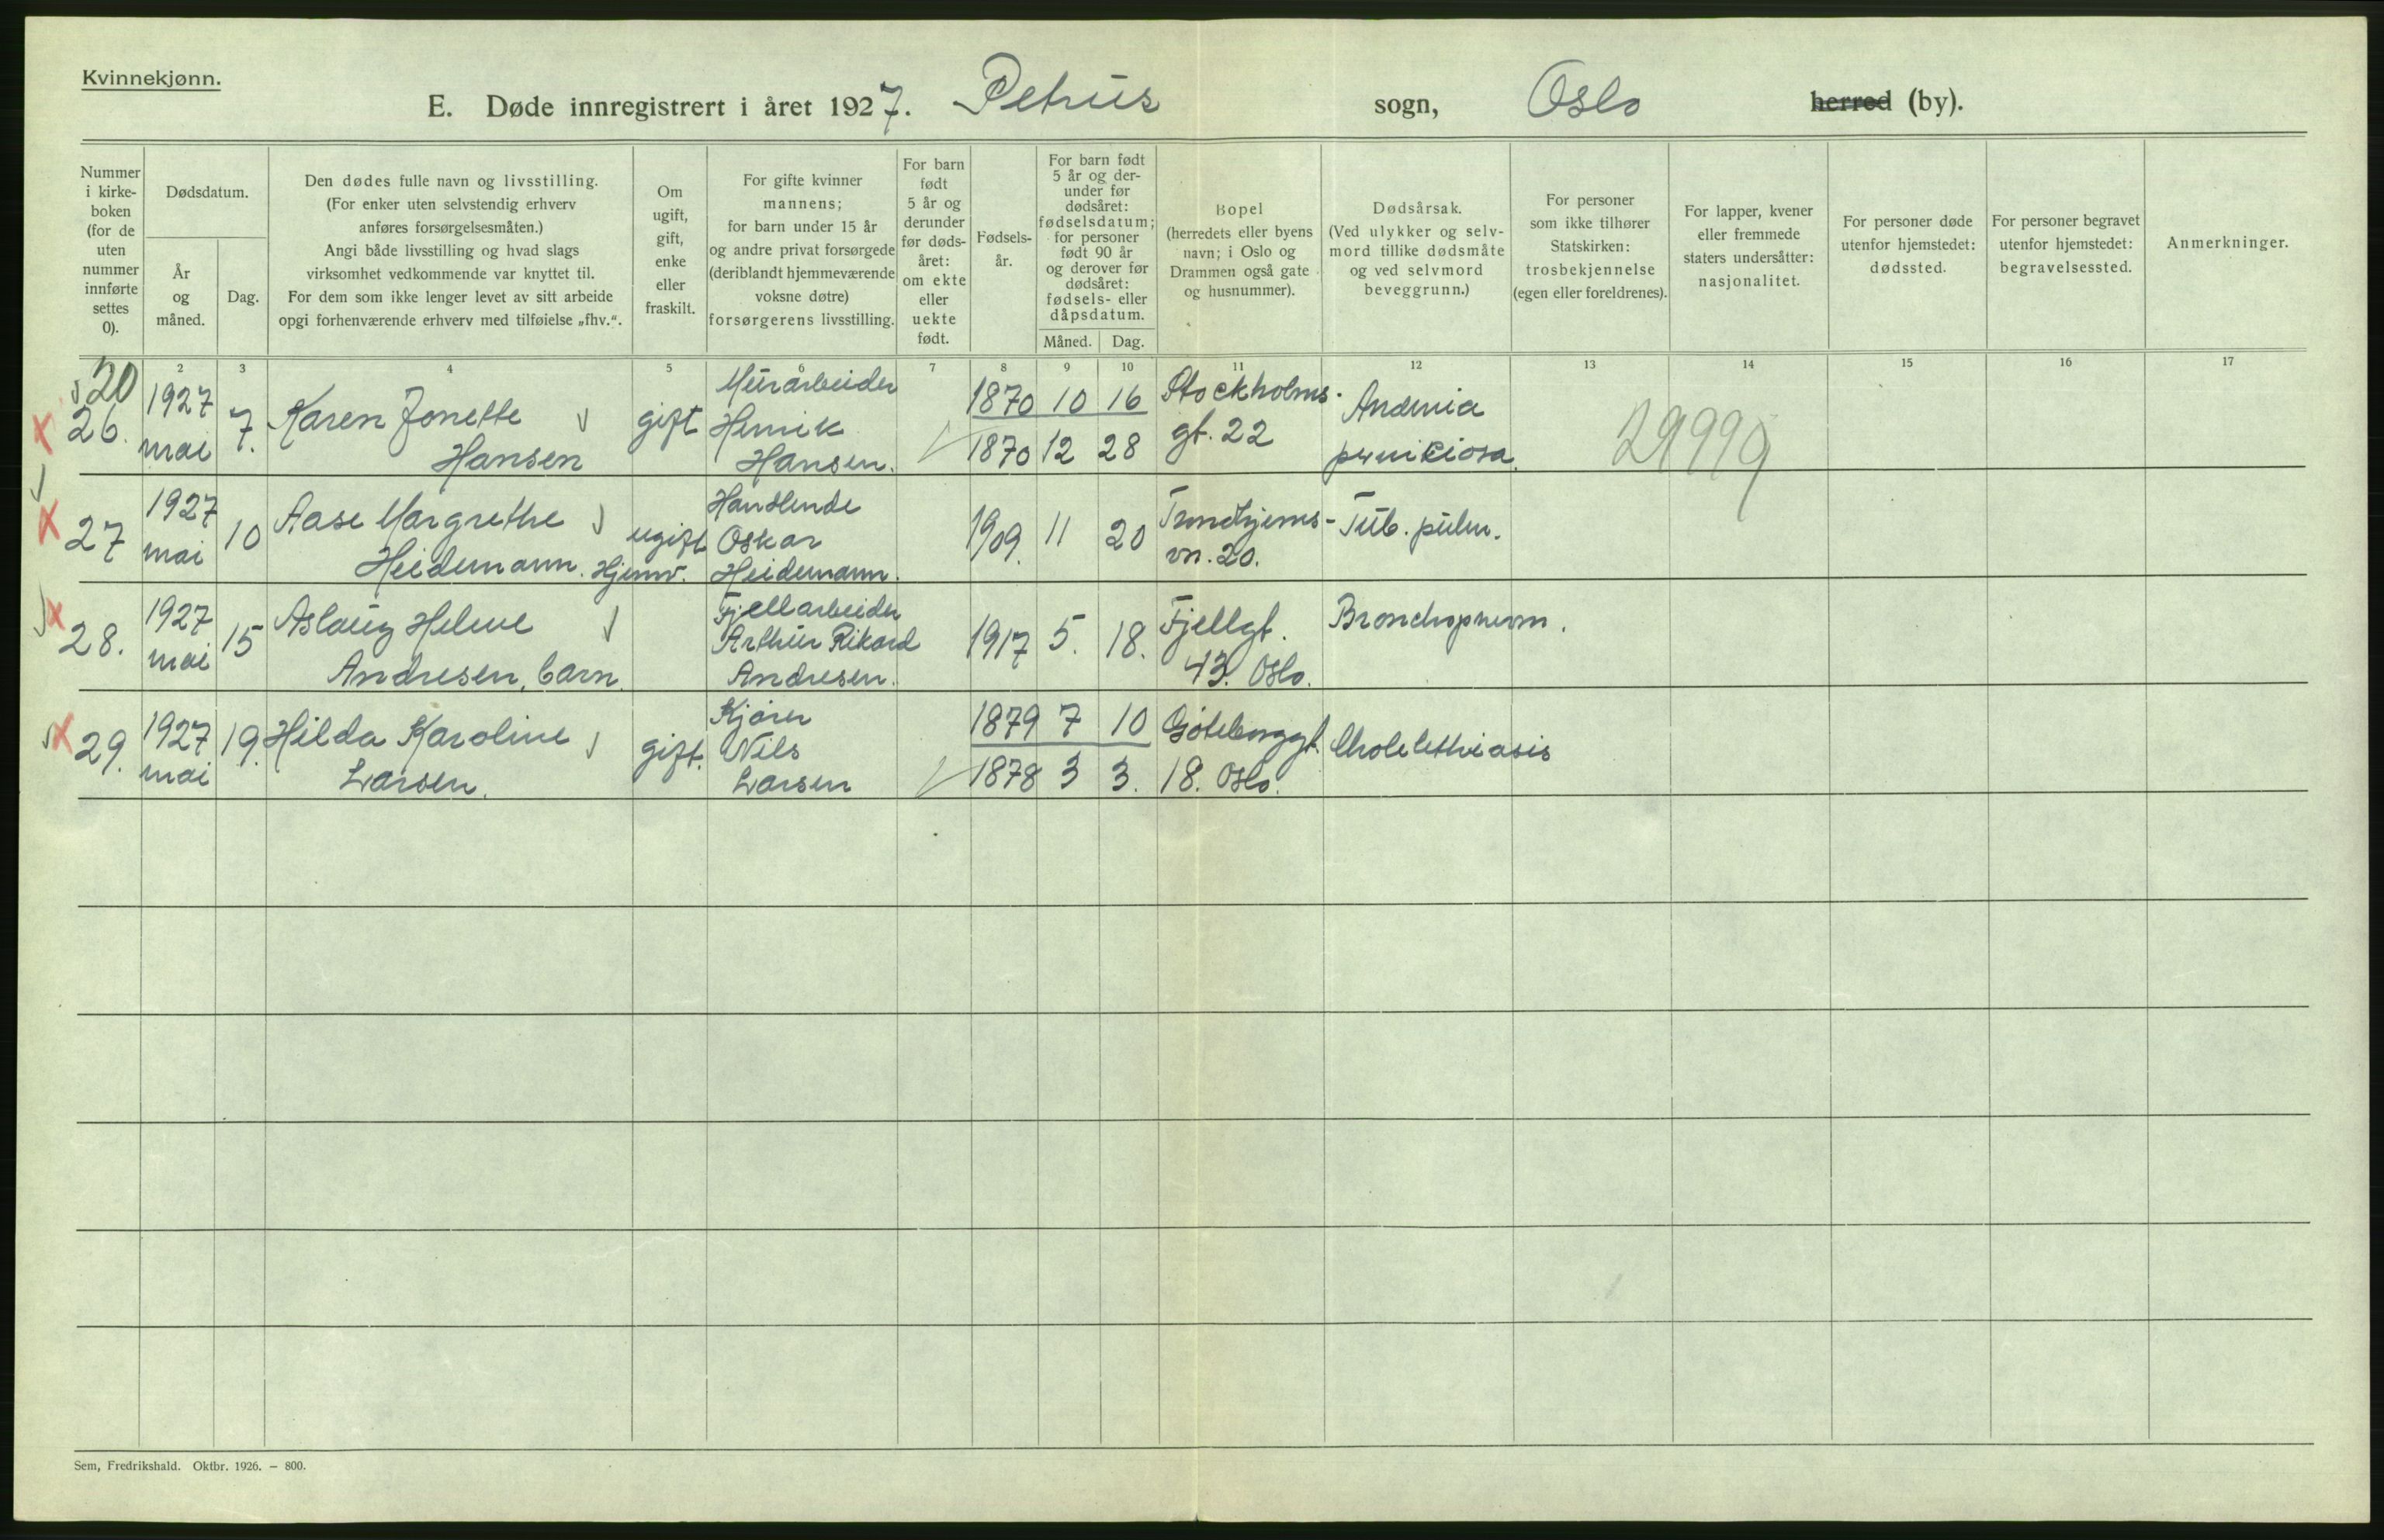 Kvinnekjønn.
E. Døde innregistrert i året 1927. Petrus sogn, Oslo herred (by).
Nummer
i kirke-
boken
(for de
uten
nummer
innførte
settes
0).
Dødsdatum.
År
og
måned.
Dag.
Den dødes fulle navn og livsstilling.
(For enker uten selvstendig erhverv
anføres forsørgelsesmåten.)
Angi både livsstilling og hvad slags
virksomhet vedkommende var knyttet til.
For dem som ikke lenger levet av sitt arbeide
opgi forhenværende erhverv med tilføielse „fhv.“.
Om
ugift,
gift,
enke
eller
fraskilt.
For gifte kvinner
mannens;
for barn under 15 år
og andre privat forsørgede
(deriblandt hjemmeværende
voksne døtre)
forsørgerens livsstilling.
For barn
født
5 år og
derunder
før døds-
året:
om ekte
eller
uekte
født.
Fødsels-
år.
For barn født
5 år og der-
under før
dødsåret:
fødselsdatum;
for personer
født 90 år
og derover før
dødsåret:
fødsels- eller
dåpsdatum.
Måned. Dag.
Bopel
(herredets eller byens
navn; i Oslo og
Drammen også gate
og husnummer).
Dødsårsak.
(Ved ulykker og selv-
mord tillike dødsmåte
og ved selvmord
beveggrunn.)
For personer
som ikke tilhører
Statskirken:
trosbekjennelse
(egen eller foreldrenes).
For lapper, kvener
eller fremmede
staters undersåtter:
nasjonalitet.
For personer døde
utenfor hjemstedet:
dødssted.
For personer begravet
utenfor hjemstedet:
begravelsessted.
Anmerkninger.
2 3 4 5 6 7 8 9 10 11 12 13 14 15 16 17
20
26.
1927
mai
7.
Karen Jonette
Hansen
gift
Murarbeider
Henrik
Hansen.
1870 10 16
1870 12 28
Stockholms-
gt. 22
Anæmia
perniciosa.
29999
27
1927
mai
10
Aase Margrethe
Heidemann. Hjemv.
ugift
Handlende
Oskar
Heidemann.
1909. 11 20
Trondhjems-
vn. 20.
Tub. pulm.
28.
1927
mai
15
Aslaug Helene
Andresen, barn.
Fjellarbeider
Arthur Rikard
Andresen.
1917 5. 18.
Fjellgt.
43. Oslo.
Bronchopneum.
29.
1927
mai
19.
Hilda Karoline
Larsen.
gift.
Kjører
Nils
Larsen
1879 7 10
1878 3 3.
Göteborggt.
18. Oslo.
Cholelithiasis
Sem, Fredrikshald. Oktbr. 1926. — 800.